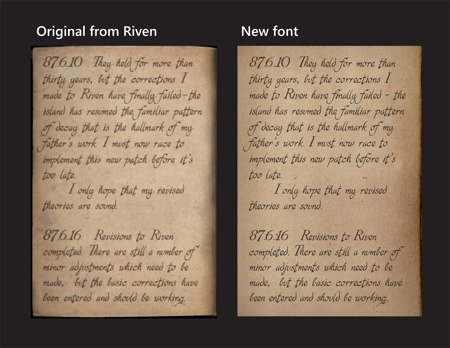 Original from Riven
87.6.10 They held for more than
thirty years, but the corrections I
made to Riven have finally failed - the
island has resumed the familiar pattern
of decay that is the hallmark of my
father's work. I must now race to
implement this new patch before it's
too late.
I only hope that my revised
theories are sound.
87.6.16 Revisions to Riven
completed. There are still a number of
minor adjustments which need to be
made, but the basic corrections have
been entered and should be working.
New font
87.6.10 They held for more than
thirty years, but the corrections I
made to Riven have finally failed - the
island has resumed the familiar pattern
of decay that is the hallmark of my
father's work. I must now race to
implement this new patch before it's
too late.
I only hope that my revised
theories are sound.
87.6.16 Revisions to Riven
completed. There are still a number of
minor adjustments which need to be
made, but the basic corrections have
been entered and should be working.